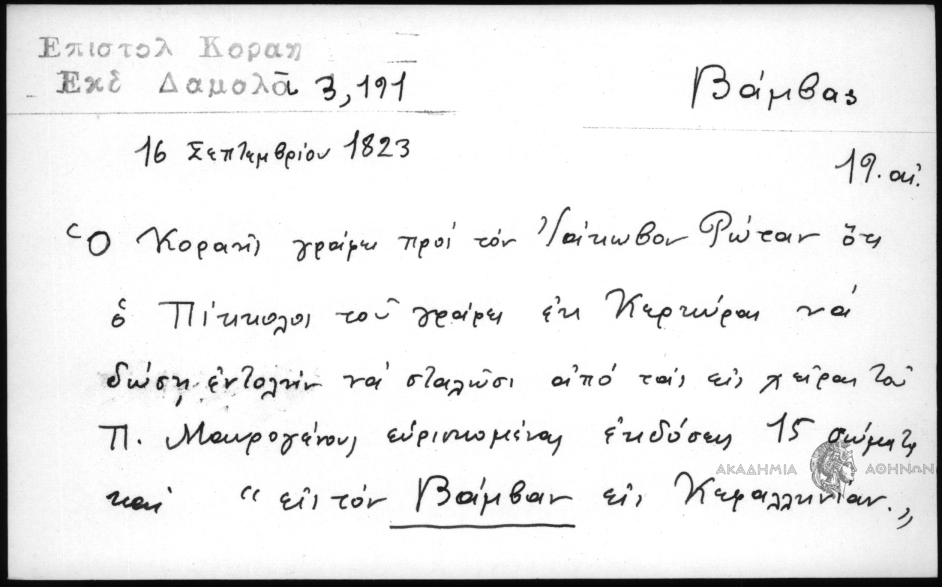 Επιστολ Κοραη
Εκδ Δαμαλᾶ 3,191
Βάμβας
16 Σεπτεμβρίου 1823
19. αἰ.
Ὁ Κοραῆς γράφει πρὸς τὸν Ἰάκωβον Ρώταν ὅτι
ὁ Πίκκολος τοῦ γράφει ἐκ Κερκύρας νὰ
δώσῃ ἐντολὴν νὰ σταλῶσι ἀπὸ τὰς εἰς χεῖρας τοῦ
Π. Μαυρογένους εὑρισκομένας ἐκδόσεις 15 σώματα
ΑΚΑΔΗΜΙΑ ΑΘΗΝΩΝ
καὶ “εἰς τὸν Βάμβαν εἰς Κεφαλληνίαν.„